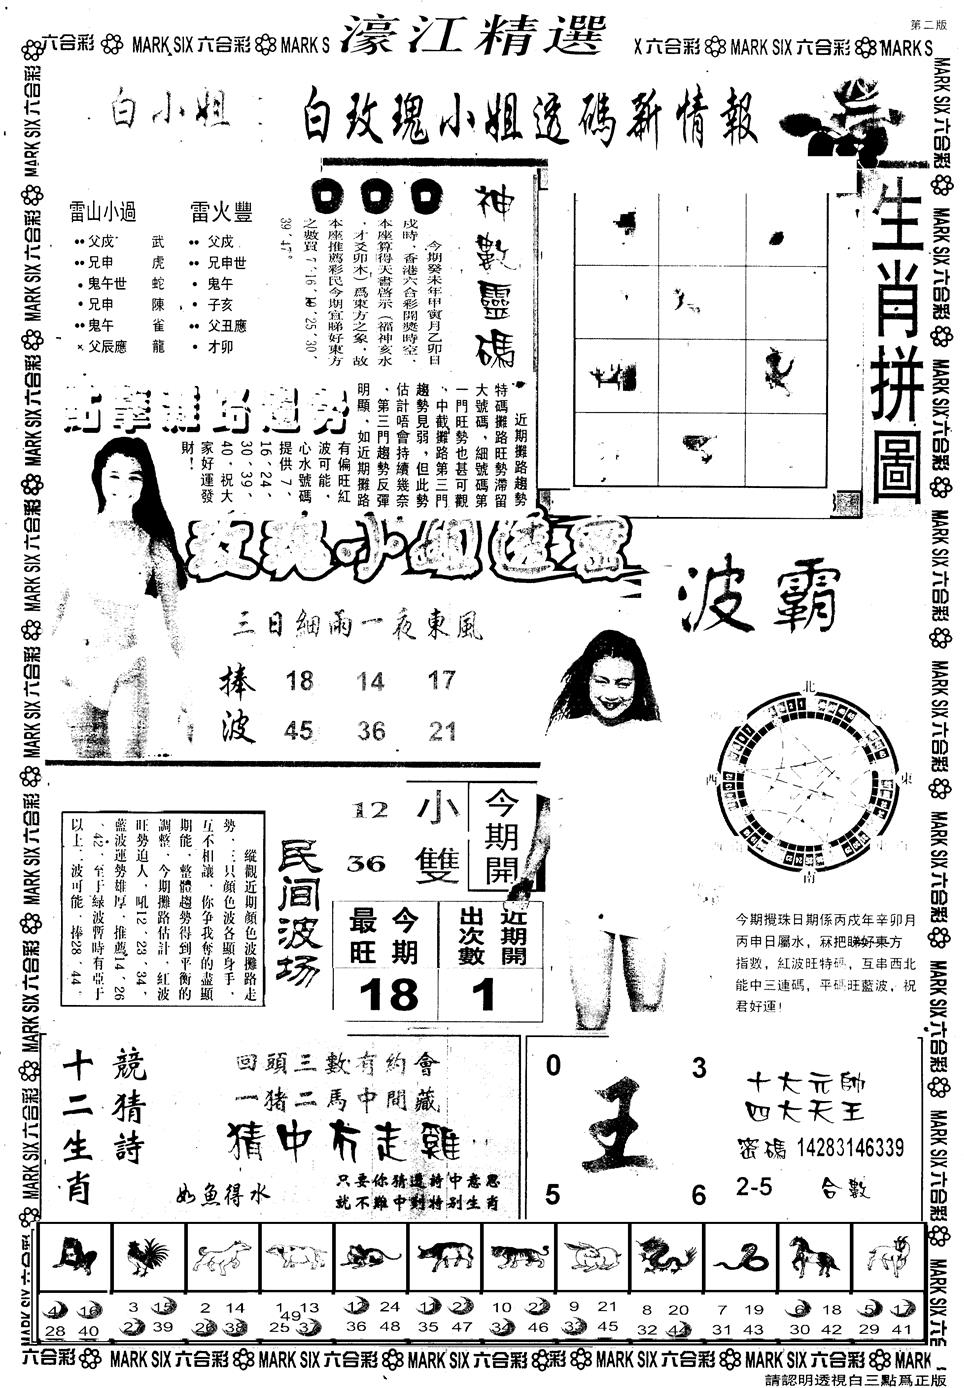 第二版
六合彩 MARK SIX 六合彩 MARK S
濠江精選
X 六合彩 MARK SIX 六合彩 MARK S
白小姐
白玫瑰小姐透碼新情報
雷山小過
雷火豐
父戍 武
兄申 虎
鬼午世 蛇
兄申 陳
鬼午 雀
父辰應 龍
父戍
兄申世
鬼午
子亥
父丑應
才卯
神數靈碼
今期癸未年甲寅月乙卯日
戍時，香港六合彩開獎時空，
本座算得天書啓示（福神亥水
，才爻卯木）爲東方之象，故
本座推薦彩民今期宜睇好東方
之數買7、16、10、25、30、
39、47。
生肖拼圖
近期攤路趨勢
特碼攤路旺勢滯留
大號碼，細號碼第
一門旺勢也甚可觀
，中截攤路第三門
趨勢見弱，但此勢
估計唔會持續幾奈
，第三門趨勢反彈
明顯，如近期攤路
有偏旺紅
波可能，
心水號碼
提供7、
16、24、
30、39、
40，祝大
家好運發
財！
玫瑰小姐透靈
三日細雨一夜東風
捧波
18 14 17
45 36 21
波霸
北
西
東
南
今期開
小 12
雙 36
民间波场
縱觀近期顏色波攤路走
勢，三只顏色波各顯身手，
互不相讓，你争我奪的盡顯
期能，整體趨勢得到平衡的
調整，今期攤路估計，紅波
旺勢迫人，吼12、23、34，
藍波運勢雄厚，推薦14、26
、42，至于緑波暫時有亞于
以上，波可能，捧28、44。
今期最旺
近期開出次數
18 1
今期攪珠日期係丙戌年辛卯月
丙申日屬水，冧把睇好東方
指數，紅波旺特碼，互串西北
能中三連碼，平碼旺藍波，祝
君好運！
十二生肖
競猜詩
回頭三數有約會
一猪二馬中間藏
猜中冇走雞
如魚得水
只要你猜透詩中意思
就不難中對特別生肖
0 3
王
5 6
十大元帥
四大天王
密碼 14283146339
2-5 合數
4 16 3 15 2 14 1 13 12 24 11 23 10 22 9 21 8 20 7 19 6 18 5 17
28 40 27 39 26 38 25 37 49 36 48 35 47 34 46 33 45 32 44 31 43 30 42 29 41
六合彩 MARK SIX 六合彩 MARK SIX 六合彩 MARK SIX 六合彩 MARK SIX 六合彩 MARK SIX 六合彩 MARK
請認明透視白三點爲正版